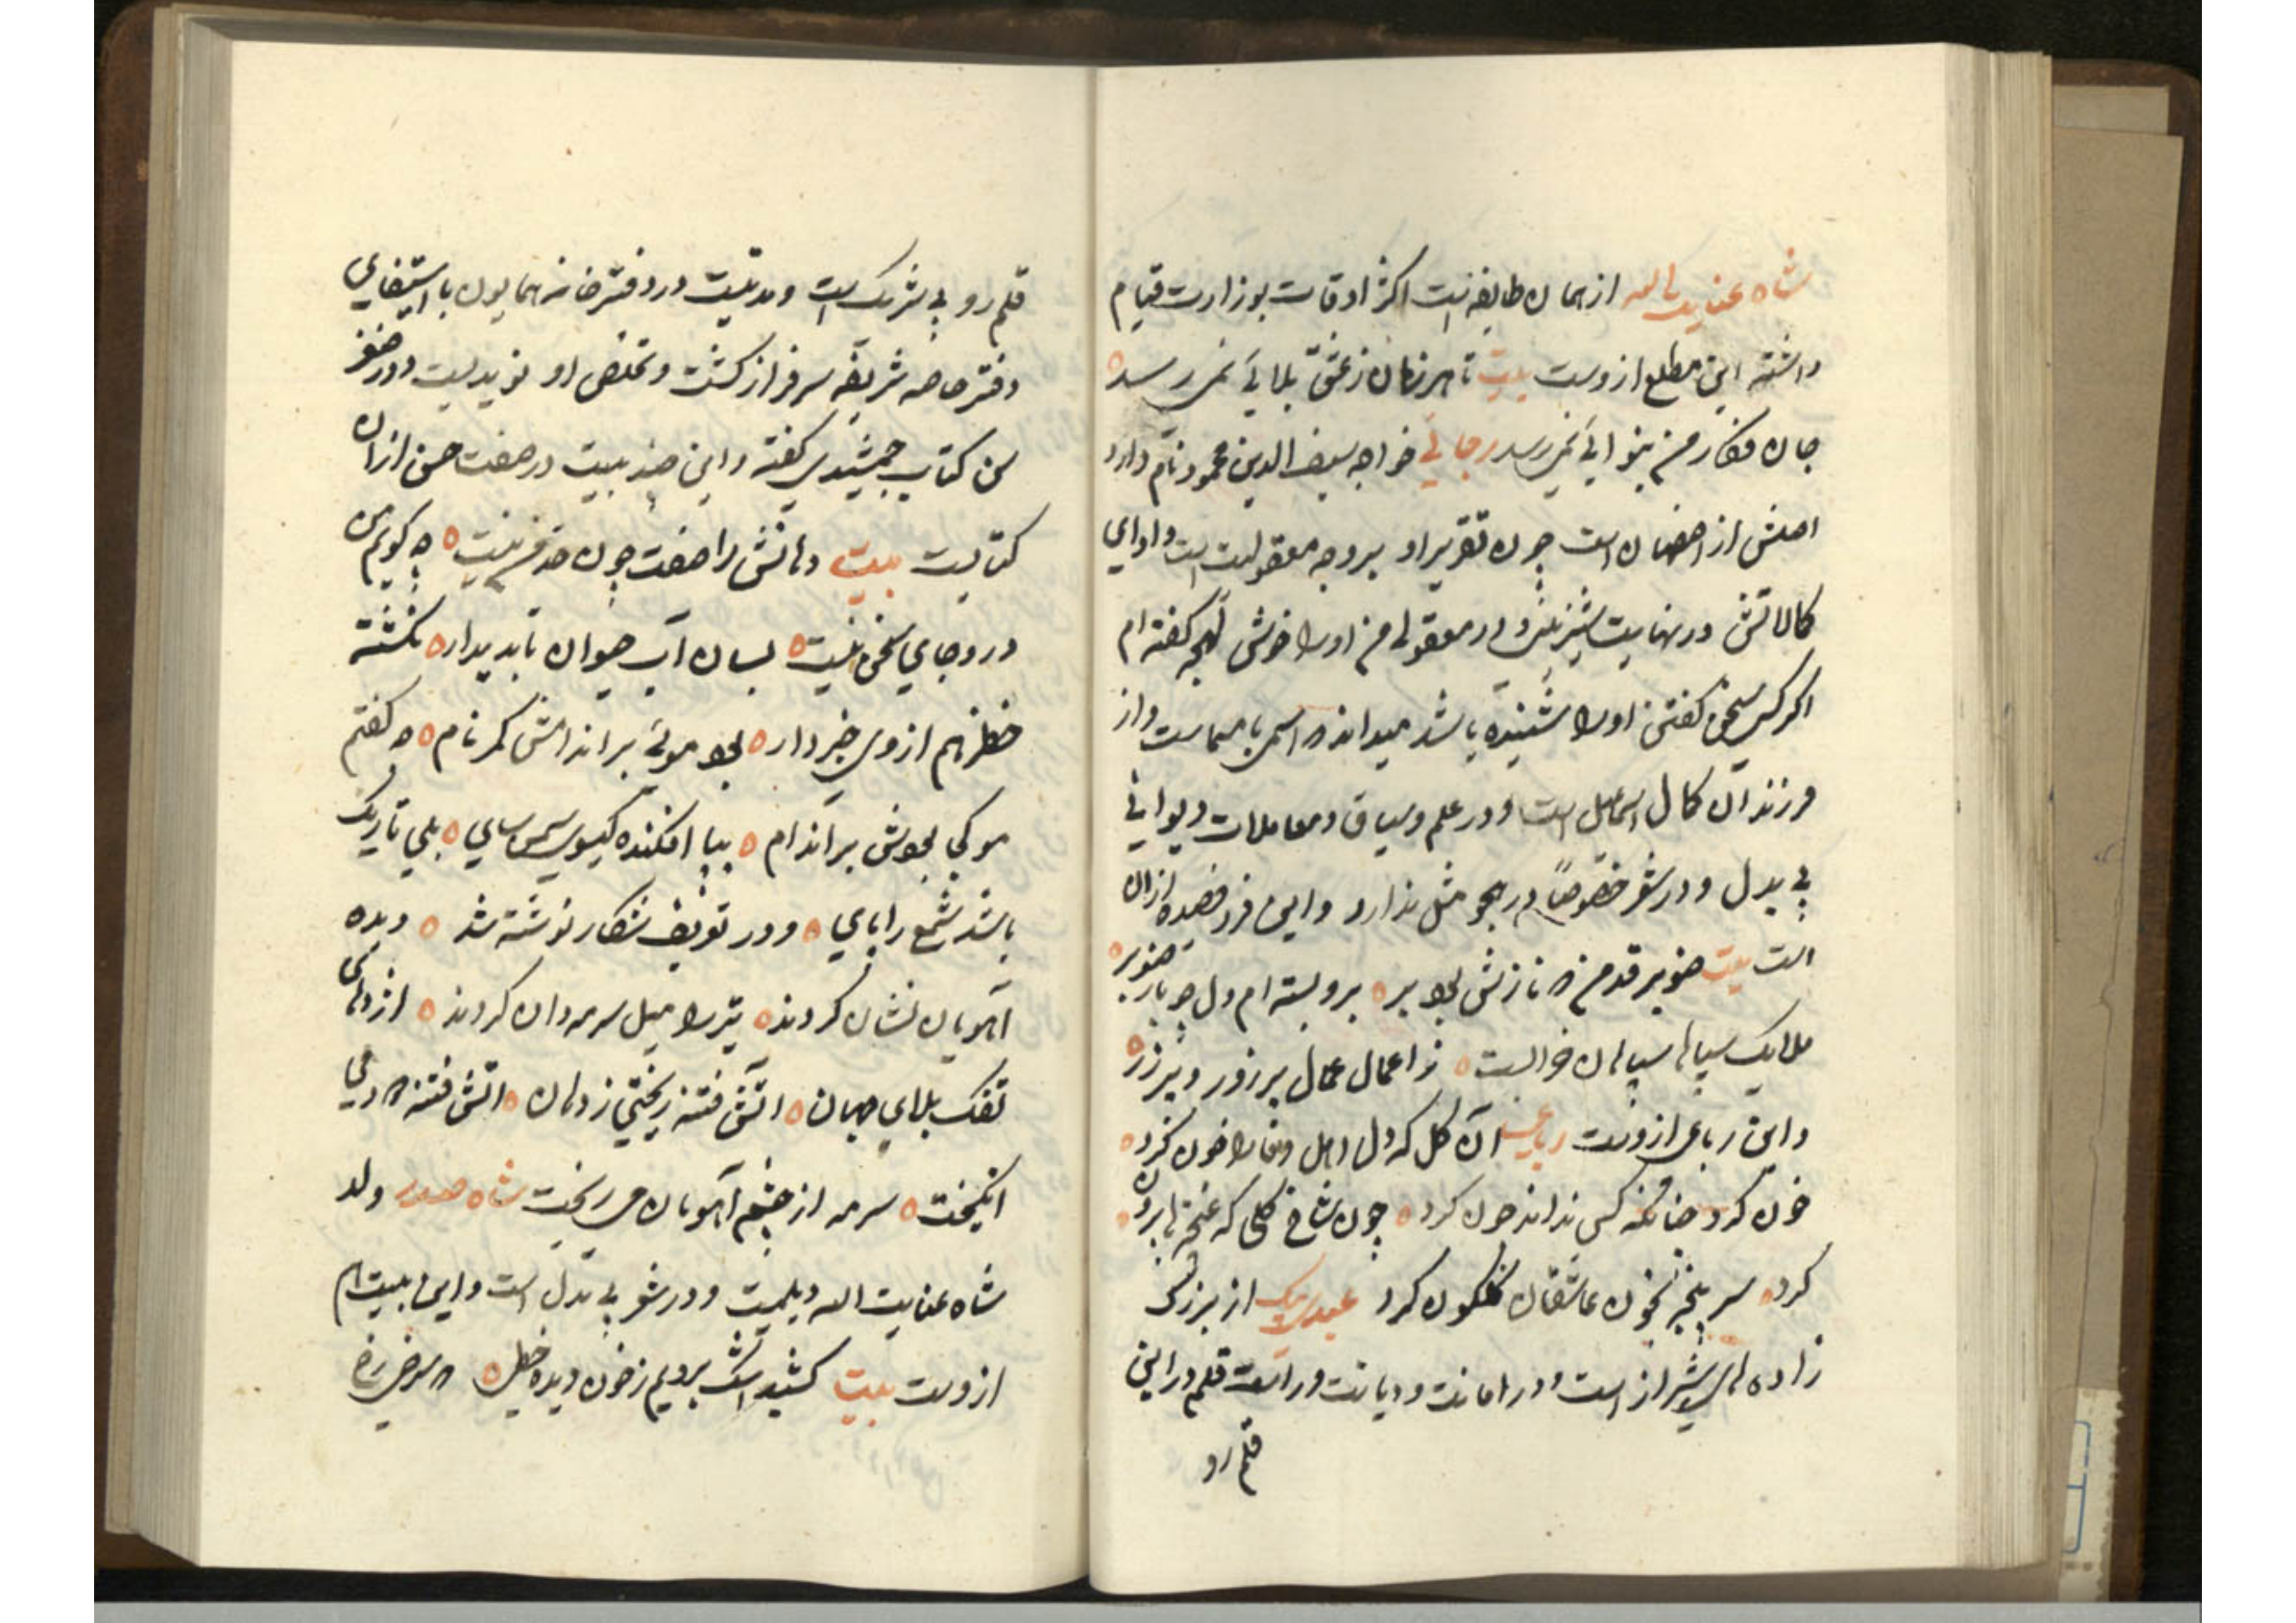 شاه عنایت الله از همان طایفه است اکثر اوقات بوزارت قیام
داشته این مطلع ازوست بیت تا هر زمان ز عشق بلائی نمی رسد
جان فکار من بنوائی نمیرسد رجائی خواجه سیف الدین محمود نام دارد
اصلش از اصفهان است چون تقریر او بر وجه معقولیت است و ادای
کالاتش در نهایت شیرینی و در معقولی من او را خوش لهجه کفته ام
اکر کسی سخن کفتن او را شنیده باشد میداند که اسمی با مسماست و از
فرزندان کمال اسماعیل است و در علم و سیاق و معاملات دیوانی
بی بدل و در شعر خصوصاً در هجو مثل ندارد و این فرد قصیده ازان
است بیت صنوبر قد من که نازش بود بر برو بسته ام دل چو بار صنوبر
ملایک سپاها سپاهان خرابست ز اعمال عمال پر زور و پر زر
و این رباعی ازوست رباعی آن کل که دل اهل وفا را خون کرد
خون کرد چنانکه کس نداند چون کرد چون شاخ کلی که غنچه ها برون
کرد سر پنجه بخون عاشقان کلکون کرد عبدی بیک از بزرک
زاده های شیراز است و در امانت و دیانت و راست قلم در این
قلم رو
قلم رو بی شریک است و مدتیست در دفترخانه همایون با استیفای
دفتر خاصه شریفه سرفراز کشت و تخلص او نویدیست و در
کتاب جمشیدی کفته و این چند بیت در صفت حسن ازان
کتابست بیت دهانش را صفت چون حد من نیست چه کویم من
درو جای سخن نیست بسان آب حیوان ناپدیدار نکشته
خضر هم از وی خبردار بود موئی بر اندامش کمر نام چه کفتم
موکی بودش بر اندام بپا افکنده کیسوی سمن سای بلی تاریک
باشد شمع را پای و در تعریف شکار نوشته شد دیده
آهویان نشان کردند تیر را میل سرمه دان کردند اژدهای
تفک بلای جهان اتش فتنه ریختی ز دهان اتش فتنه که دمی
انکیخت سرمه از چشم آهوان می ریخت شاه صدر ولد
شاه عنایت الله دیلمیت و در شعر بی بدل است و این بیت هم
ازوست بیت کشید اشک برویم ز خون دیده خطی که